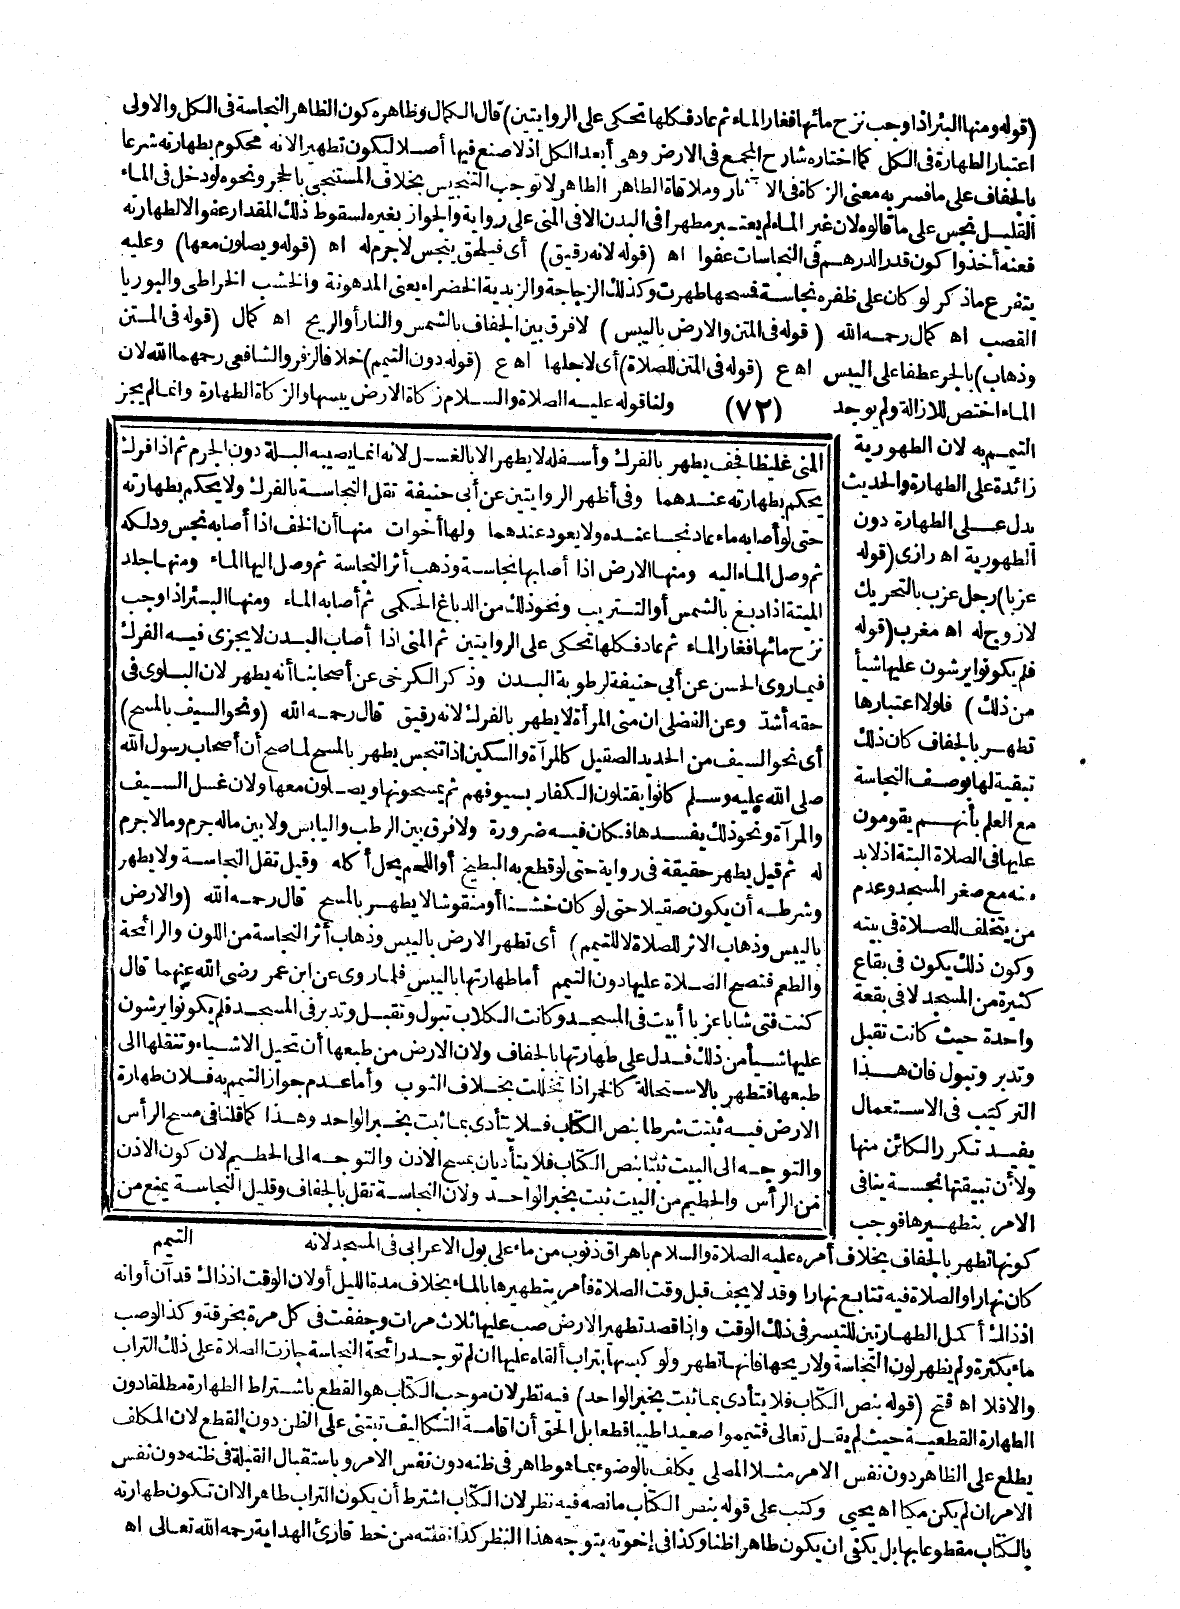 (قوله ومنها البئر اذا وجب نزح مائها فغار الماء ثم عاد فكلها تحكى على الروايتين) قال الكمال وظاهره كون الظاهر النجاسة فى الكل والاولى
اعتبار الطهارة فى الكل كما اختاره شارح المجمع فى الارض وهى أبعد الكل اذ لا صنع فيها أصلا ليكون تطهيرا لانه محكوم بطهارته شرعا
بالجفاف على ما فسر به معنى الزكاة فى الآثار وملاقاة الطاهر الطاهر لا توجب التنجيس بخلاف المستنجى بالحجر ونحوه لو دخل فى الماء
القليل نجس على ما قالوه لان غير الماء لم يعتبر مطهرا فى البدن الا فى المنى على رواية والجواز بغيره لسقوط ذلك المقدار عفوا لا لطهارته
فعنه أخذوا كون قدر الدرهم فى النجاسات عفوا اه (قوله لانه رقيق) أى فيلحق بنجس لا جرم له اه (قوله ويصلون معها) وعليه
يتفرع ماذكر لو كان على ظفره نجاسة فمسحها طهرت وكذلك الزجاجة والزبدية الخضراء يعنى المدهونة والخشب الخراطى والبوريا
القصب اه كمال رحمه الله (قوله فى المتن والارض باليبس) لا فرق بين الجفاف بالشمس والنار أو الريح اه كمال (قوله فى المتن
وذهاب) بالجر عطفا على اليبس اه ع (قوله فى المتن للصلاة) أى لاجلها اه ع (قوله دون التيمم) خلافا لزفر والشافعى رحمهما الله لان
الماء اختص للازالة ولم يوجد (٧٢) ولنا قوله عليه الصلاة والسلام زكاة الارض يبسها والزكاة الطهارة وانما لم يجز
التيمم به لان الطهورية
زائدة على الطهارة والحديث
يدل على الطهارة دون
الطهورية اه رازى (قوله
عزبا) رجل عزب بالتحريك
لا زوج له اه مغرب (قوله
فلم يكونوا يرشون عليها شيأ
من ذلك) فلولا اعتبارها
تطهر بالجفاف كان ذلك
تبقية لها بوصف النجاسة
مع العلم بأنهم يقومون
عليها فى الصلاة البتة اذ لابد
منه مع صغر المسجد وعدم
من يتخلف للصلاة فى بيته
وكون ذلك يكون فى بقاع
كثيرة من المسجد لا فى بقعة
واحدة حيث كانت تقبل
وتدبر وتبول فان هذا
التركيب فى الاستعمال
يفيد تكرر الكائن منها
ولأن تبقيتها نجسة ينافى
الامر بتطهيرها فوجب
المنى غليظا فجف يطهر بالفرك وأسفله لا يطهر الا بالغسل لانه انما يصيبه البلة دون الجرم ثم اذا فرك
يحكم بطهارته عندهما وفى أظهر الروايتين عن أبى حنيفة تقل النجاسة بالفرك ولا يحكم بطهارته
حتى لو أصابه ماء عاد نجسا عنده ولا يعود عندهما ولها أخوات منها أن الخف اذا أصابه نجس ودلكه
ثم وصل الماء اليه ومنها الارض اذا أصابها نجاسة وذهب أثر النجاسة ثم وصل اليها الماء ومنها جلد
الميتة اذا دبغ بالشمس أو التتريب ونحو ذلك من الدباغ الحكمى ثم أصابه الماء ومنها البئر اذا وجب
نزح مائها فغار الماء ثم عاد فكلها تحكى على الروايتين ثم المنى اذا أصاب البدن لا يجزى فيه الفرك
فيما روى الحسن عن أبى حنيفة لرطوبة البدن وذكر الكرخى عن أصحابنا أنه يطهر لان البلوى فى
حقه أشد وعن الفضلى ان منى المرأة لا يطهر بالفرك لانه رقيق قال رحمه الله (ونحو السيف بالمسح)
أى نحو السيف من الحديد الصقيل كالمرآة والسكين اذا تنجس يطهر بالمسح لما صح أن أصحاب رسول الله
صلى الله عليه وسلم كانوا يقتلون الكفار بسيوفهم ثم يمسحونها ويصلون معها ولان غسل السيف
والمرآة ونحو ذلك يفسدها فكان فيه ضرورة ولا فرق بين الرطب واليابس ولا بين ماله جرم وما لا جرم
له ثم قيل يطهر حقيقة فى رواية حتى لو قطع به البطيخ أو اللحم يحل أكله وقيل تقل النجاسة ولا يطهر
وشرطه أن يكون صقيلا حتى لو كان خشنا أو منقوشا لا يطهر بالمسح قال رحمه الله (والارض
باليبس وذهاب الاثر للصلاة لا للتيمم) أى تطهر الارض باليبس وذهاب أثر النجاسة من اللون والرائحة
والطعم فتصح الصلاة عليها دون التيمم أما طهارتها باليبس فلما روى عن ابن عمر رضى الله عنهما قال
كنت فتى شابا عزبا أبيت فى المسجد وكانت الكلاب تبول وتقبل وتدبر فى المسجد فلم يكونوا يرشون
عليها شيأ من ذلك فدل على طهارتها بالجفاف ولان الارض من طبعها أن تحيل الاشياء وتنقلها الى
طبعها فتطهر بالاستحالة كالخمر اذا تخللت بخلاف الثوب وأما عدم جواز التيمم به فلان طهارة
الارض فيه ثبتت شرطا بنص الكتاب فلا يتأدى بما ثبت بخبر الواحد وهذا كما قلنا فى مسح الرأس
والتوجه الى البيت ثبتا بنص الكتاب فلا يتأديان بمسح الاذن والتوجه الى الحطيم لان كون الاذن
من الرأس والحطيم من البيت ثبت بخبر الواحد ولان النجاسة تقل بالجفاف وقليل النجاسة يمنع من
التيمم
كونها تطهر بالجفاف بخلاف أمره عليه الصلاة والسلام باهراق ذنوب من ماء على بول الاعرابى فى المسجد لانه
كان نهارا والصلاة فيه تتابع نهارا وقد لا يجف قبل وقت الصلاة فأمر بتطهيرها بالماء بخلاف مدة الليل أو لان الوقت اذ ذاك قد آن أوانه
اذ ذاك أكمل الطهارتين للتيسر فى ذلك الوقت واذا قصد تطهير الارض صب عليها ثلاث مرات وجففت فى كل مرة بخرقة وكذا لو صب
ماء بكثرة ولم يظهر لون النجاسة ولا ريحها فانها تطهر ولو كبسها بتراب ألقاه عليها ان لم توجد رائحة النجاسة جازت الصلاة على ذلك التراب
والا فلا اه فتح (قوله بنص الكتاب فلا يتأدى بما ثبت بخبر الواحد) فيه نظر لان موجب الكتاب هو القطع باشتراط الطهارة مطلقا دون
الطهارة القطعية حيث لم يقل تعالى فتيمموا صعيدا طيبا قطعا بل الحق أن اقامة التكاليف تبتنى على الظن دون القطع لان المكلف
يطلع على الظاهر دون نفس الامر مثلا المصلى يكلف بالوضوء بما هو طاهر فى ظنه دون نفس الامر وباستقبال القبلة فى ظنه دون نفس
الامر ان لم يكن مكيا اه يحيى وكتب على قوله بنص الكتاب ما نصه فيه نظر لان الكتاب اشترط أن يكون التراب طاهرا لا ان تكون طهارته
بالكتاب مقطوعا بها بل يكفى ان يكون طاهرا ظنا وكذا فى إخوته يتوجه هذا النظر كذا نقلته من خط قارئ الهداية رحمه الله تعالى اه